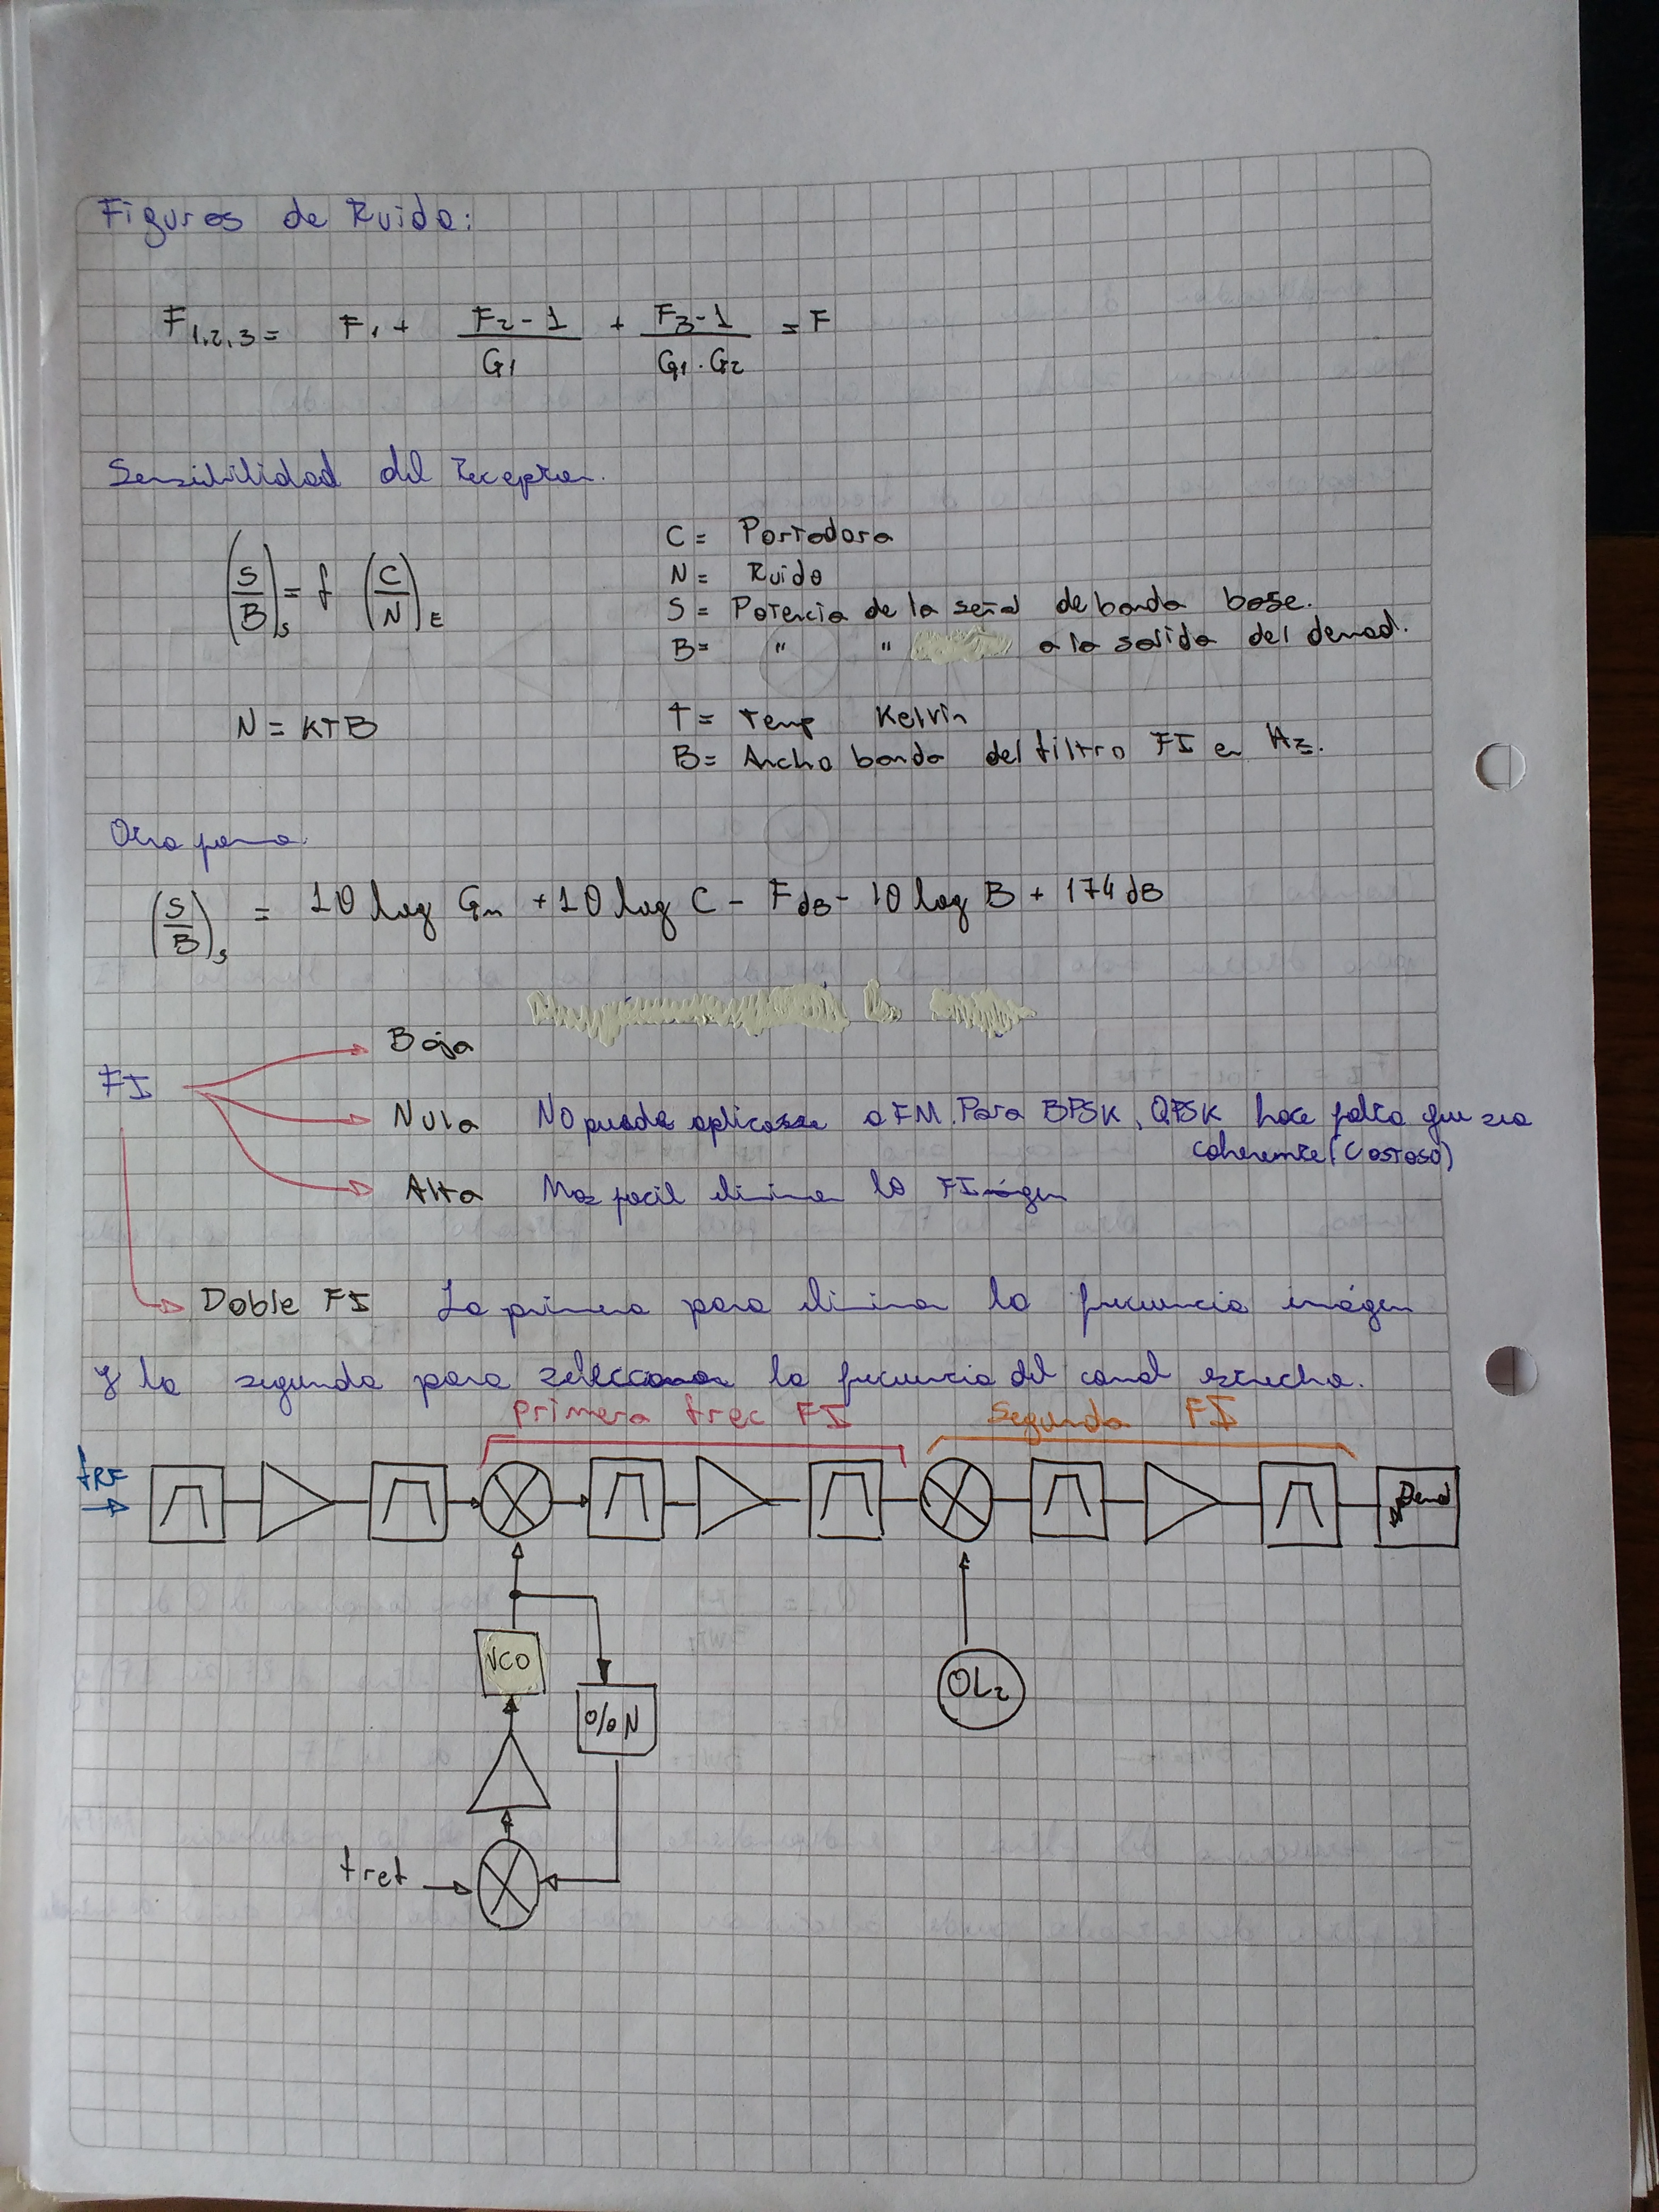 Figuras de Ruido:
F1,2,3 = F1 + (F2-1)/G1 + (F3-1)/(G1·G2) = F
Sensibilidad del receptor.
(S/B)s = f (C/N)E
C = Portadora
N = Ruido
S = Potencia de la señal de banda base.
B = " " a la salida del demod.
N = KTB
T = Temp Kelvin
B = Ancho banda del filtro FI en Hz.
Otra forma:
(S/B)s = 10 log Gm + 10 log C - FdB - 10 log B + 174 dB
FI
Baja
Nula No puede aplicarse a FM. Para BPSK, QPSK hace falta que sea
coherente (Costoso)
Alta Mas facil eliminar la FImágen
Doble FI La primera para eliminar la frecuencia imágen
y la segunda para seleccionar la frecuencia del canal estrecho.
primera frec FI Segunda FI
fRF
Demod
VCO
%N
OL2
fref